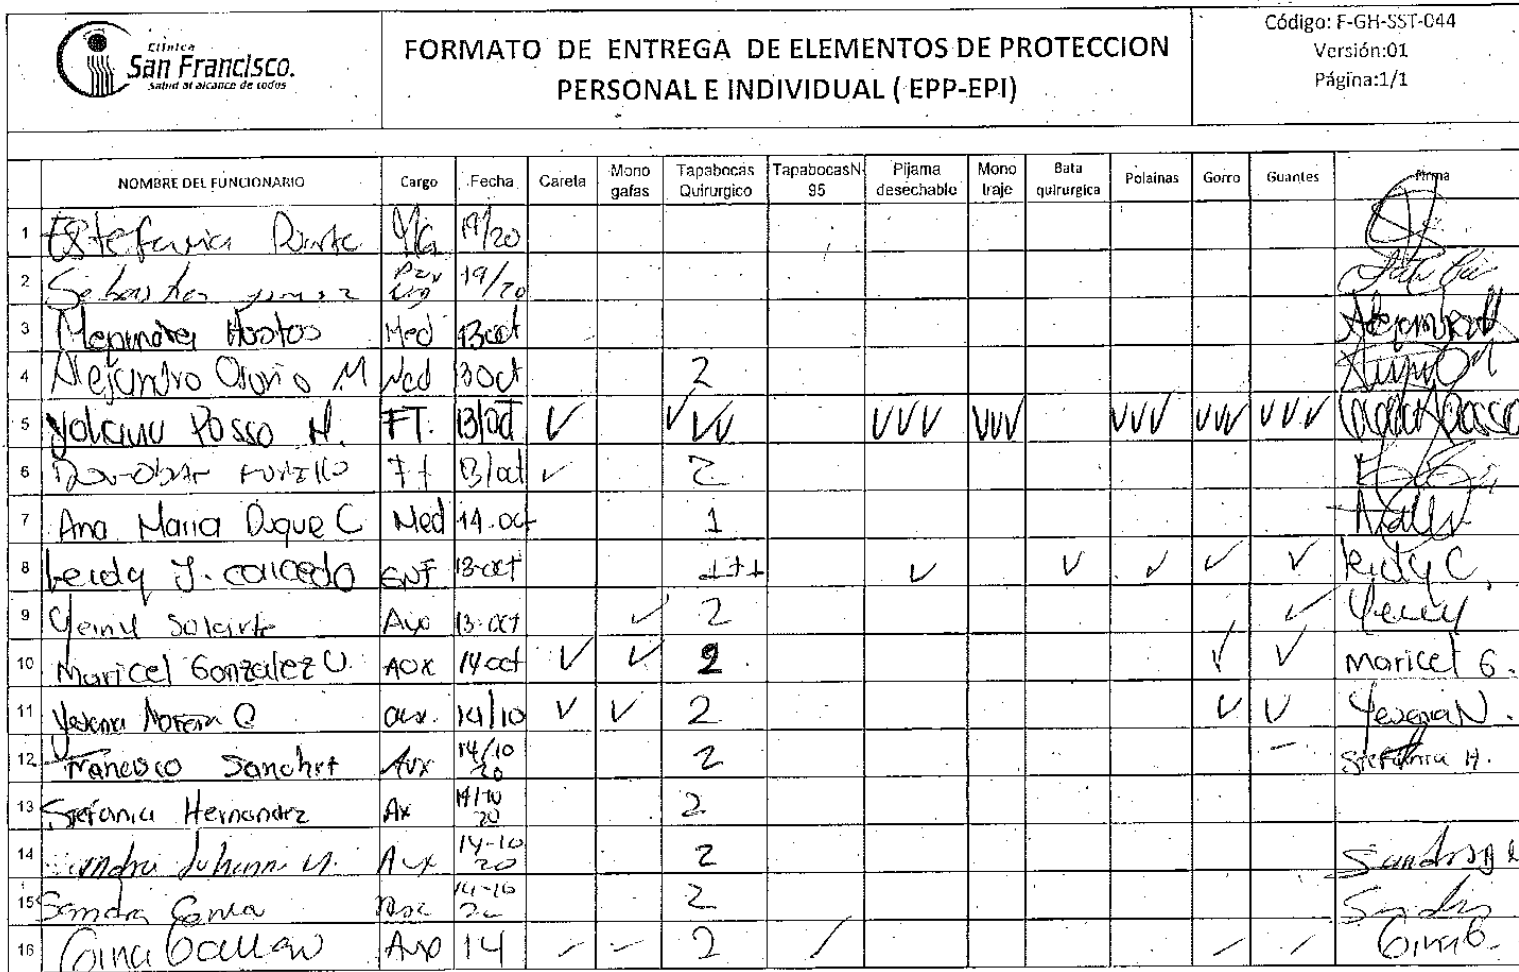 Clínica
San Francisco.
Salud al alcance de todos
FORMATO DE ENTREGA DE ELEMENTOS DE PROTECCION
PERSONAL E INDIVIDUAL ( EPP-EPI)
Código: F-GH-SST-044
Versión:01
Página:1/1
NOMBRE DEL FUNCIONARIO Cargo Fecha Careta Mono gafas Tapabocas Quirurgico TapabocasN 95 Pijama desechable Mono traje Bata quirurgica Polainas Gorro Guantes Firma
1 Estefania 19/20
2 19/20
3 Hostos Med 13 oct
4 Alejandro Osorio M Med 13 Oct 2
5 Posso H. FT. 13/oct ✓ ✓✓✓ ✓✓✓ ✓✓✓ ✓✓✓ ✓✓✓ ✓✓✓
6 Ft 13/oct ✓ 2
7 Ana Maria Duque C Med 14-oct 1
8 Leidy J. Caicedo ENF 13-oct ✓ ✓ ✓ ✓ ✓ Leidy C.
9 Solarte Aux 13-oct ✓ 2 ✓
10 Maricel Gonzalez U. AUX 14 oct ✓ ✓ 2 ✓ ✓ Maricel G.
11 aux. 14/10 ✓ ✓ 2 ✓ ✓ Yesenia N.
12 Francisco Aux 14/10 20 2 - Stefania H.
13 Stefania Hernandez Ax 14/10 20 2
14 Aux 14-10 20 2 Sandra
15 Sandra 14-10 20 2 Sandra
16 Gina Aux 14 ✓ ✓ 2 ✓ ✓ ✓ Gina G.